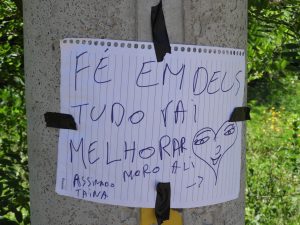 FÉ EM DEUS
TUDO VAI
MELHORAR
MORO ALI
ASSINADO
TAINA